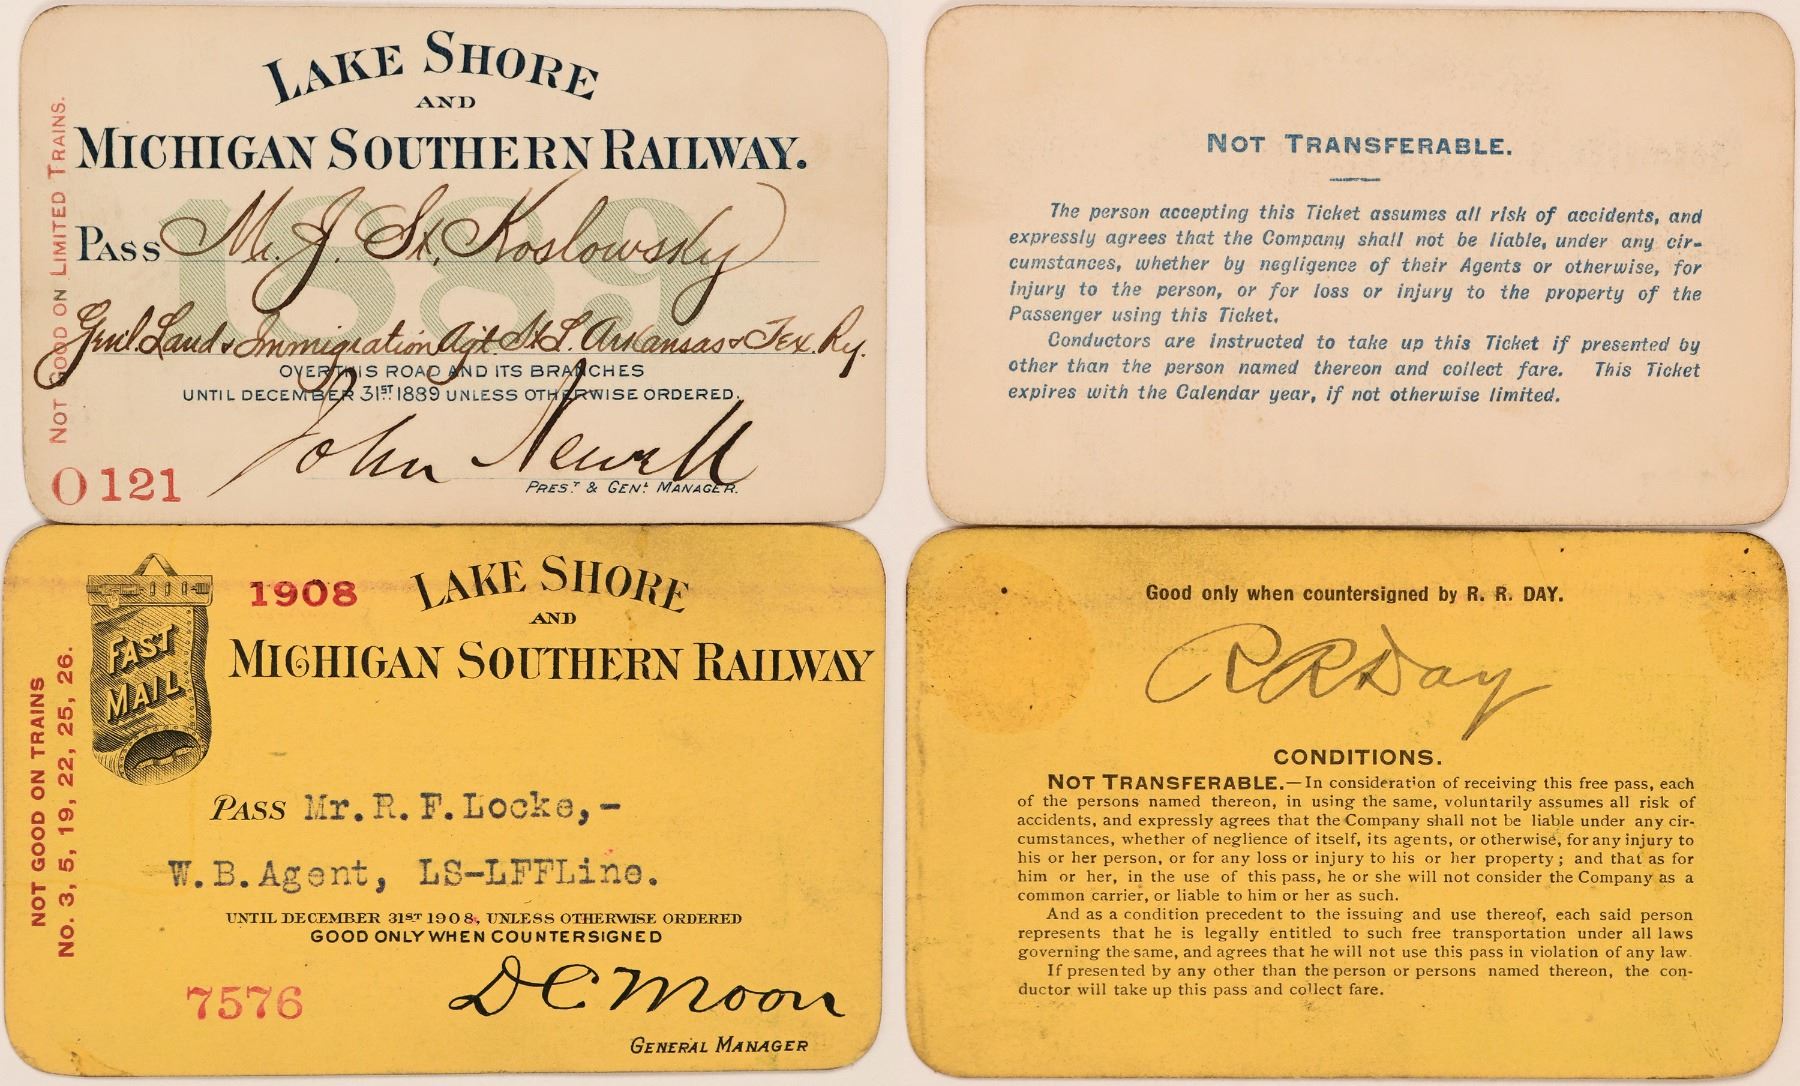 LAKE SHORE
AND
MICHIGAN SOUTHERN RAILWAY.
1889
PASS Mr. J. St. Koslowsky
Genl. Land & Immigration Agt. St. L. Arkansas & Tex. Ry.
OVER THIS ROAD AND ITS BRANCHES
UNTIL DECEMBER 31ST 1889 UNLESS OTHERWISE ORDERED.
John Newell
PREST & GENL MANAGER.
O 121
NOT GOOD ON LIMITED TRAINS.
NOT TRANSFERABLE.
The person accepting this Ticket assumes all risk of accidents, and
expressly agrees that the Company shall not be liable, under any cir-
cumstances, whether by negligence of their Agents or otherwise, for
injury to the person, or for loss or injury to the property of the
Passenger using this Ticket.
Conductors are instructed to take up this Ticket if presented by
other than the person named thereon and collect fare. This Ticket
expires with the Calendar year, if not otherwise limited.
FAST
MAIL
1908
LAKE SHORE
AND
MICHIGAN SOUTHERN RAILWAY
PASS Mr. R. F. Locke,-
W. B. Agent, LS-LFFLine.
UNTIL DECEMBER 31ST 1908, UNLESS OTHERWISE ORDERED
GOOD ONLY WHEN COUNTERSIGNED
7576
D C Moon
GENERAL MANAGER
NOT GOOD ON TRAINS
No. 3, 5, 19, 22, 25, 26.
Good only when countersigned by R. R. DAY.
R R Day
CONDITIONS.
NOT TRANSFERABLE.—In consideration of receiving this free pass, each
of the persons named thereon, in using the same, voluntarily assumes all risk of
accidents, and expressly agrees that the Company shall not be liable under any cir-
cumstances, whether of neglience of itself, its agents, or otherwise, for any injury to
his or her person, or for any loss or injury to his or her property; and that as for
him or her, in the use of this pass, he or she will not consider the Company as a
common carrier, or liable to him or her as such.
And as a condition precedent to the issuing and use thereof, each said person
represents that he is legally entitled to such free transportation under all laws
governing the same, and agrees that he will not use this pass in violation of any law.
If presented by any other than the person or persons named thereon, the con-
ductor will take up this pass and collect fare.